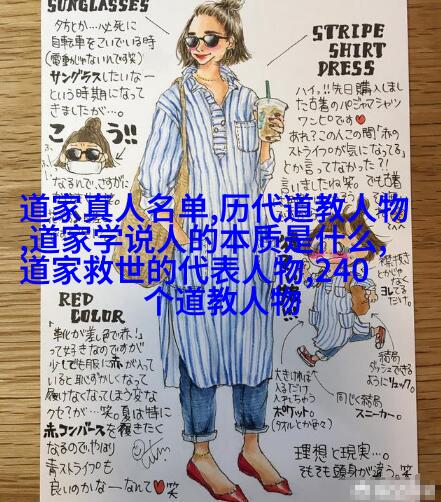 SUNGLASSES
夕方とか…必死に
自転車をこいでいる時
(電動じゃないんでね笑)
サングラスしたいなー
という時期になって
きましたが…。
こう!!
なるんで、さすがに
STRIPE
SHIRT
DRESS
ハイ!!先日購入しました
古着のパジャマシャツ
ワンピです♥
あれ?この人この間「赤の
ストライプが気になってる」
とか言ってなかった?!
言いましたね笑。でも古着
道家真人名单,历代道教人物
,道家学说人的本质是什么,
道家救世的代表人物,240
个道教人物
襟抜き
とかじゃ
なく
ヨレてる
だけ。
RED
COLOR
「靴が差し色で赤!」
って好きなのですが
少しでも服に赤が入って
いると恥ずかしくなって
履けなくなってしまう変な
クセが…笑。夏は特に
赤コンバースを履きたく
なるので、やはり
青ストライプも
良いのかなーなんて♥笑
大きければ
入るだけ
入れちゃう
ポケット。
(タオルとか色々)
結局
ダッシュできる
ようにリュック。
同じく結局
スニーカー。
理想と現実…。
そもそも頭身が違う。笑